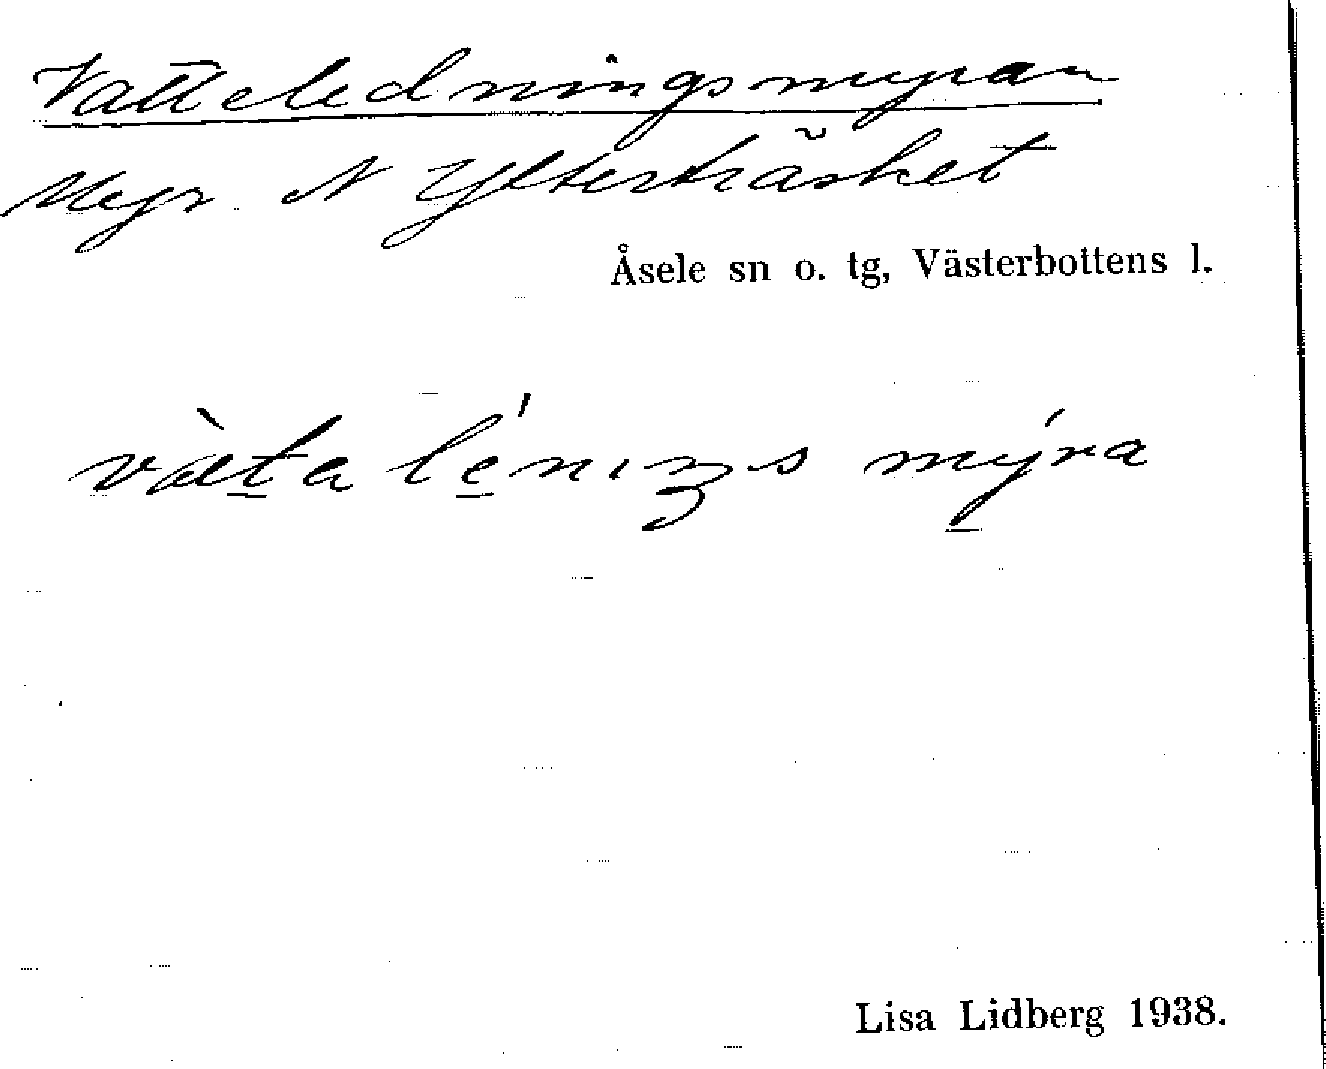 Vatteledningsmyran
Myr N Ytterträsket
Åsele sn o. tg, Västerbottens l.
vàta lénıŋs mýra
Lisa Lidberg 1938.